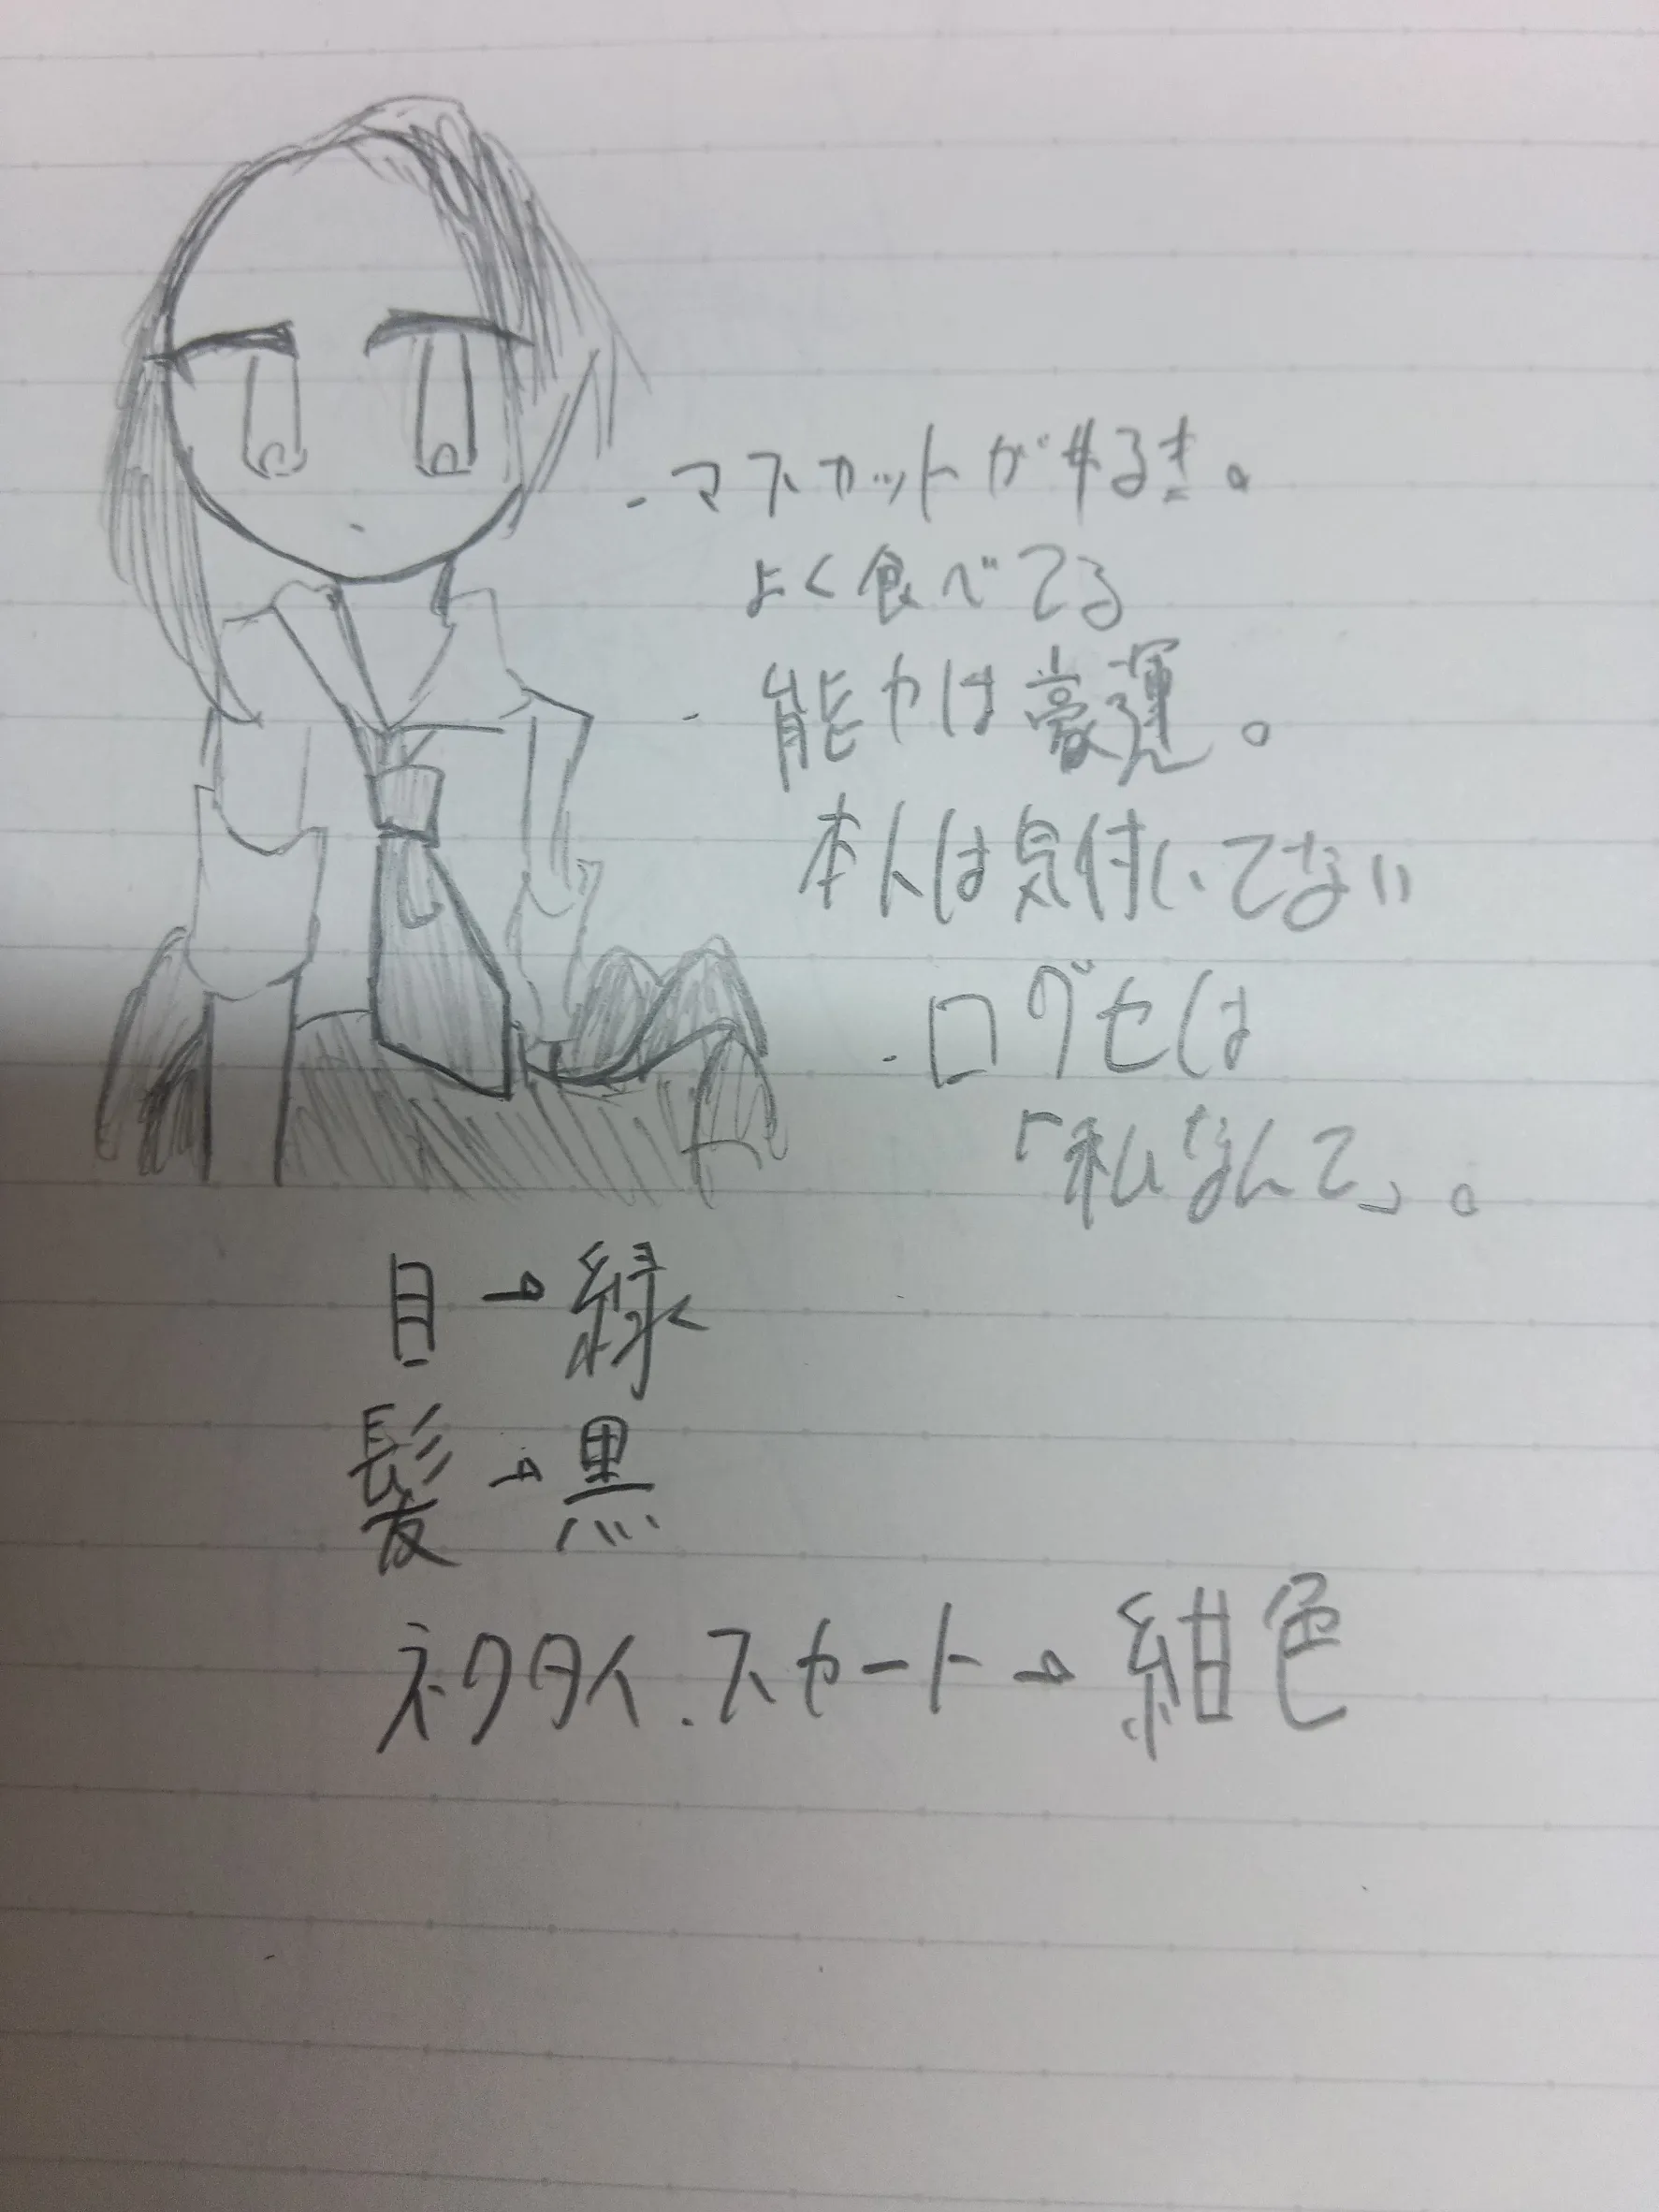 ・マスカットが好き。
よく食べてる
・能力は豪運。
本人は気付いてない
・口グセは
「私なんて」。
目→緑
髪→黒
ネクタイ.スカート→紺色